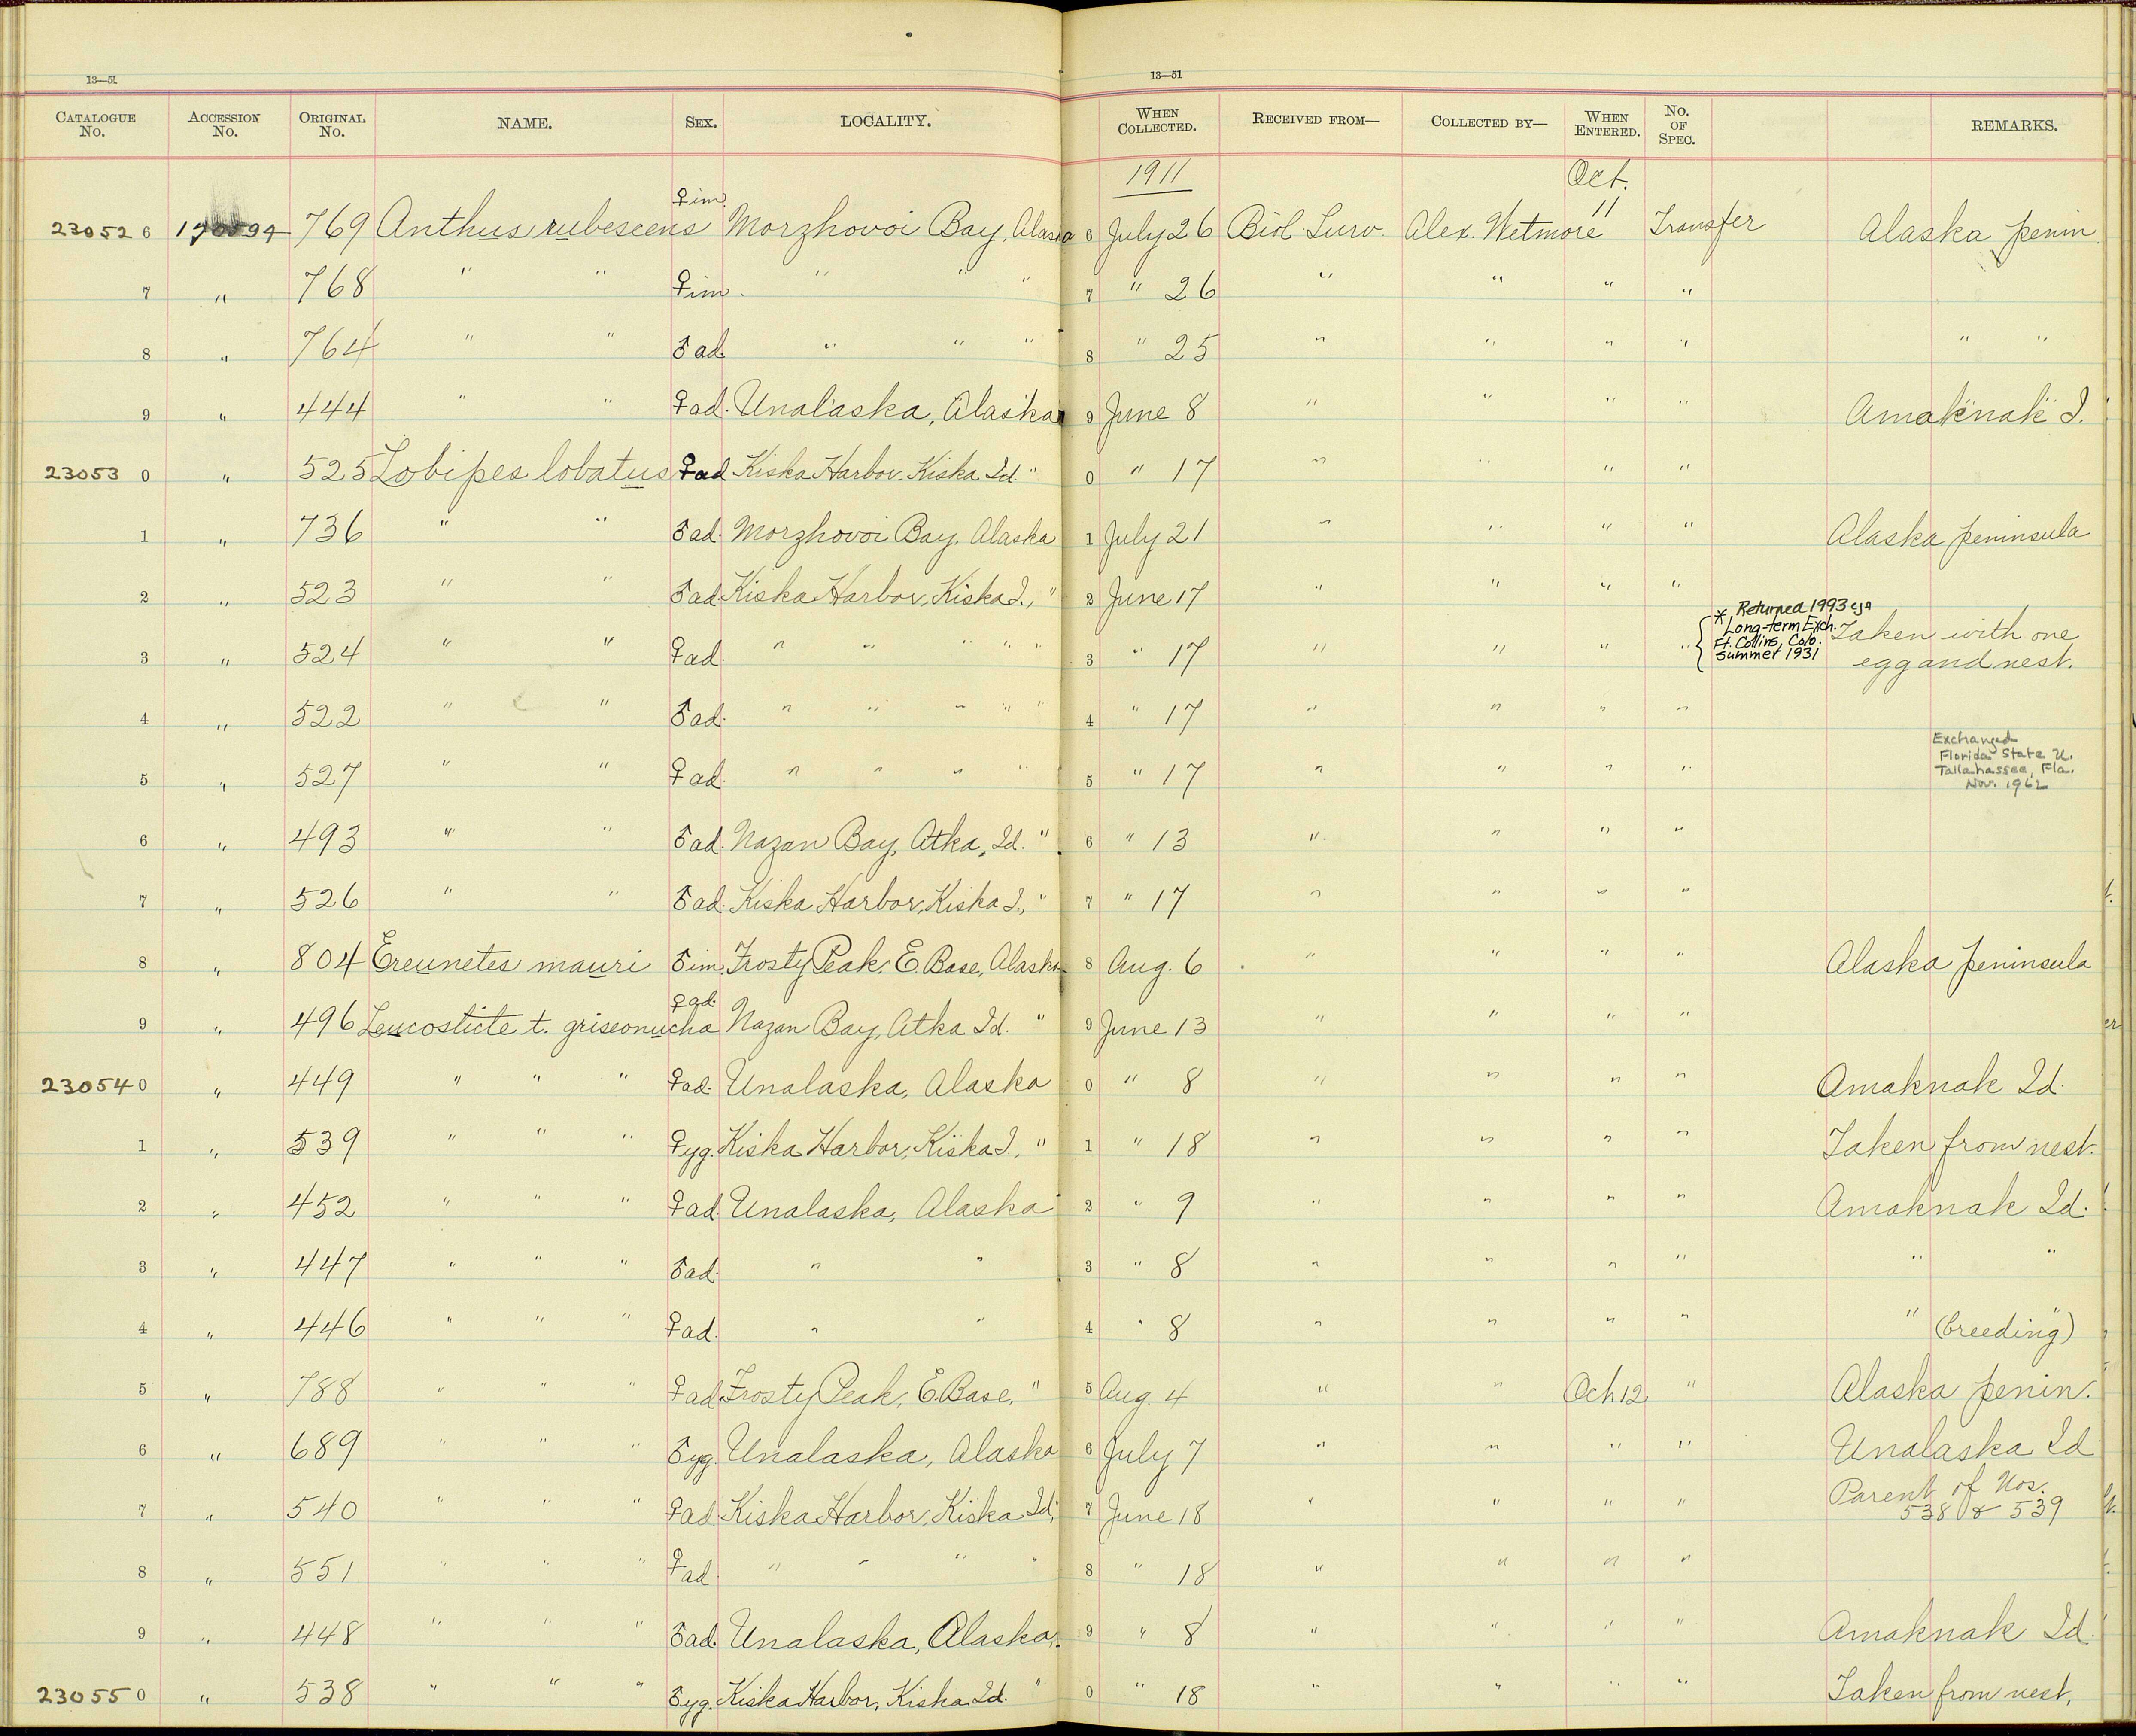 13—51 13—51
CATALOGUE No. ACCESSION No. ORIGINAL No. NAME. SEX. LOCALITY. WHEN COLLECTED. RECEIVED FROM— COLLECTED BY— WHEN ENTERED. No. OF SPEC. REMARKS.
1911 Oct.
230526 769 Anthus rubescens ♀ im. Morzhovoi Bay, Alaska 6 July 26 Biol. Surv. Alex. Wetmore 11 Transfer Alaska penin.
7 " 768 " " ♀ im. " " " 7 " 26 " " " "
8 " 764 " " ♂ ad. " " " 8 " 25 " " " " " "
9 " 444 " " ♀ ad. Unalaska, Alaska 9 June 8 " " " " Amaknak I.
230530 " 525 Lobipes lobatus ♀ ad Kiska Harbor, Kiska Id. " 0 " 17 " " " "
1 " 736 " " ♂ ad. Morzhovoi Bay, Alaska 1 July 21 " " " " Alaska peninsula
2 " 523 " " ♂ ad. Kiska Harbor, Kiska I., " 2 June 17 " " " "
3 " 524 " " ♀ ad. " " " " " 3 " 17 " " " " * Returned 1993
Long-term Exch.
Ft. Collins, Colo.
Summer 1931
Taken with one
egg and nest.
4 " 522 " " ♂ ad. " " " " " 4 " 17 " " " "
5 " 527 " " ♀ ad. " " " " 5 " 17 " " " " Exchanged
Florida State U.
Tallahassee, Fla.
Nov. 1962
6 " 493 " " ♂ ad. Nazan Bay, Atka, Id. " 6 " 13 " " " "
7 " 526 " " ♂ ad. Kiska Harbor, Kiska I., " 7 " 17 " " " "
8 " 804 Ereunetes mauri ♂ im. Frosty Peak, E. Base, Alaska 8 Aug. 6 " " " " Alaska peninsula
9 " 496 Leucosticte t. griseonucha ♀ ad. Nazan Bay, Atka Id. " 9 June 13 " " " "
230540 " 449 " " " ♀ ad. Unalaska, Alaska 0 " 8 " " " " Amaknak Id.
1 " 539 " " " ♀ yg. Kiska Harbor, Kiska I., " 1 " 18 " " " " Taken from nest.
2 " 452 " " " ♀ ad. Unalaska, Alaska 2 " 9 " " " " Amaknak Id.
3 " 447 " " " ♂ ad. " " 3 " 8 " " " " " "
4 " 446 " " " ♀ ad. " " 4 " 8 " " " " " " (breeding)
5 " 788 " " " ♀ ad. Frosty Peak, E. Base, " 5 Aug. 4 " " Oct 12 " Alaska penin.
6 " 689 " " " ♂ yg. Unalaska, Alaska 6 July 7 " " " " Unalaska Id
7 " 540 " " " ♀ ad. Kiska Harbor, Kiska Id, " 7 June 18 " " " " Parent of Nos.
538 & 539
8 " 551 " " " ♀ ad. " " " " 8 " 18 " " " "
9 " 448 " " " ♂ ad. Unalaska, Alaska, 9 " 8 " " " " Amaknak Id.
230550 " 538 " " " ♂ yg. Kiska Harbor, Kiska Id. " 0 " 18 " " " " Taken from nest,